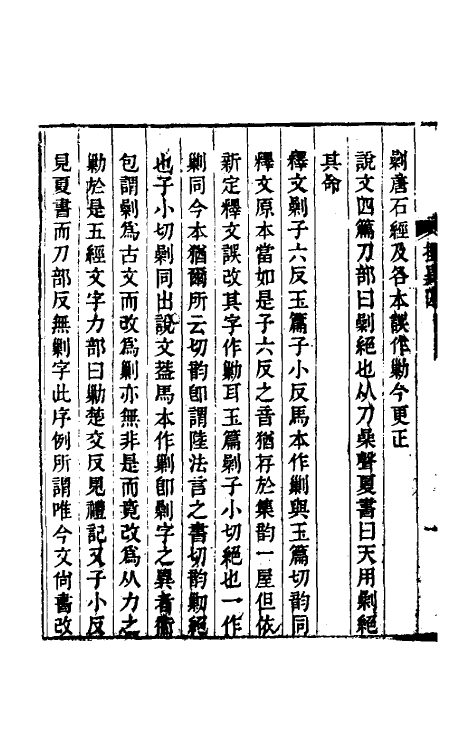 剿唐石經及各本誤作勦今更正
說文四篇刀部曰剿絕也从刀喿聲夏書曰天用剿絕
其命
釋文剿子六反玉篇子小反馬本作巢刂與玉篇切韵同
釋文原本當如是子六反之音猶存於集韵一屋但依
新定釋文誤改其字作勦耳玉篇剿子小切絕也一作
巢刂同今本猶爾所云切韵卽謂陸法言之書切韵勦絕
也子小切剿同出說文葢馬本作巢刂卽剿字之異者衞
包謂剿爲古文而改爲巢刂亦無非是而竟改爲从力之
勦於是五經文字力部曰勦楚交反見禮記又子小反
見夏書而刀部反無巢刂字此序例所謂唯今文尙書改